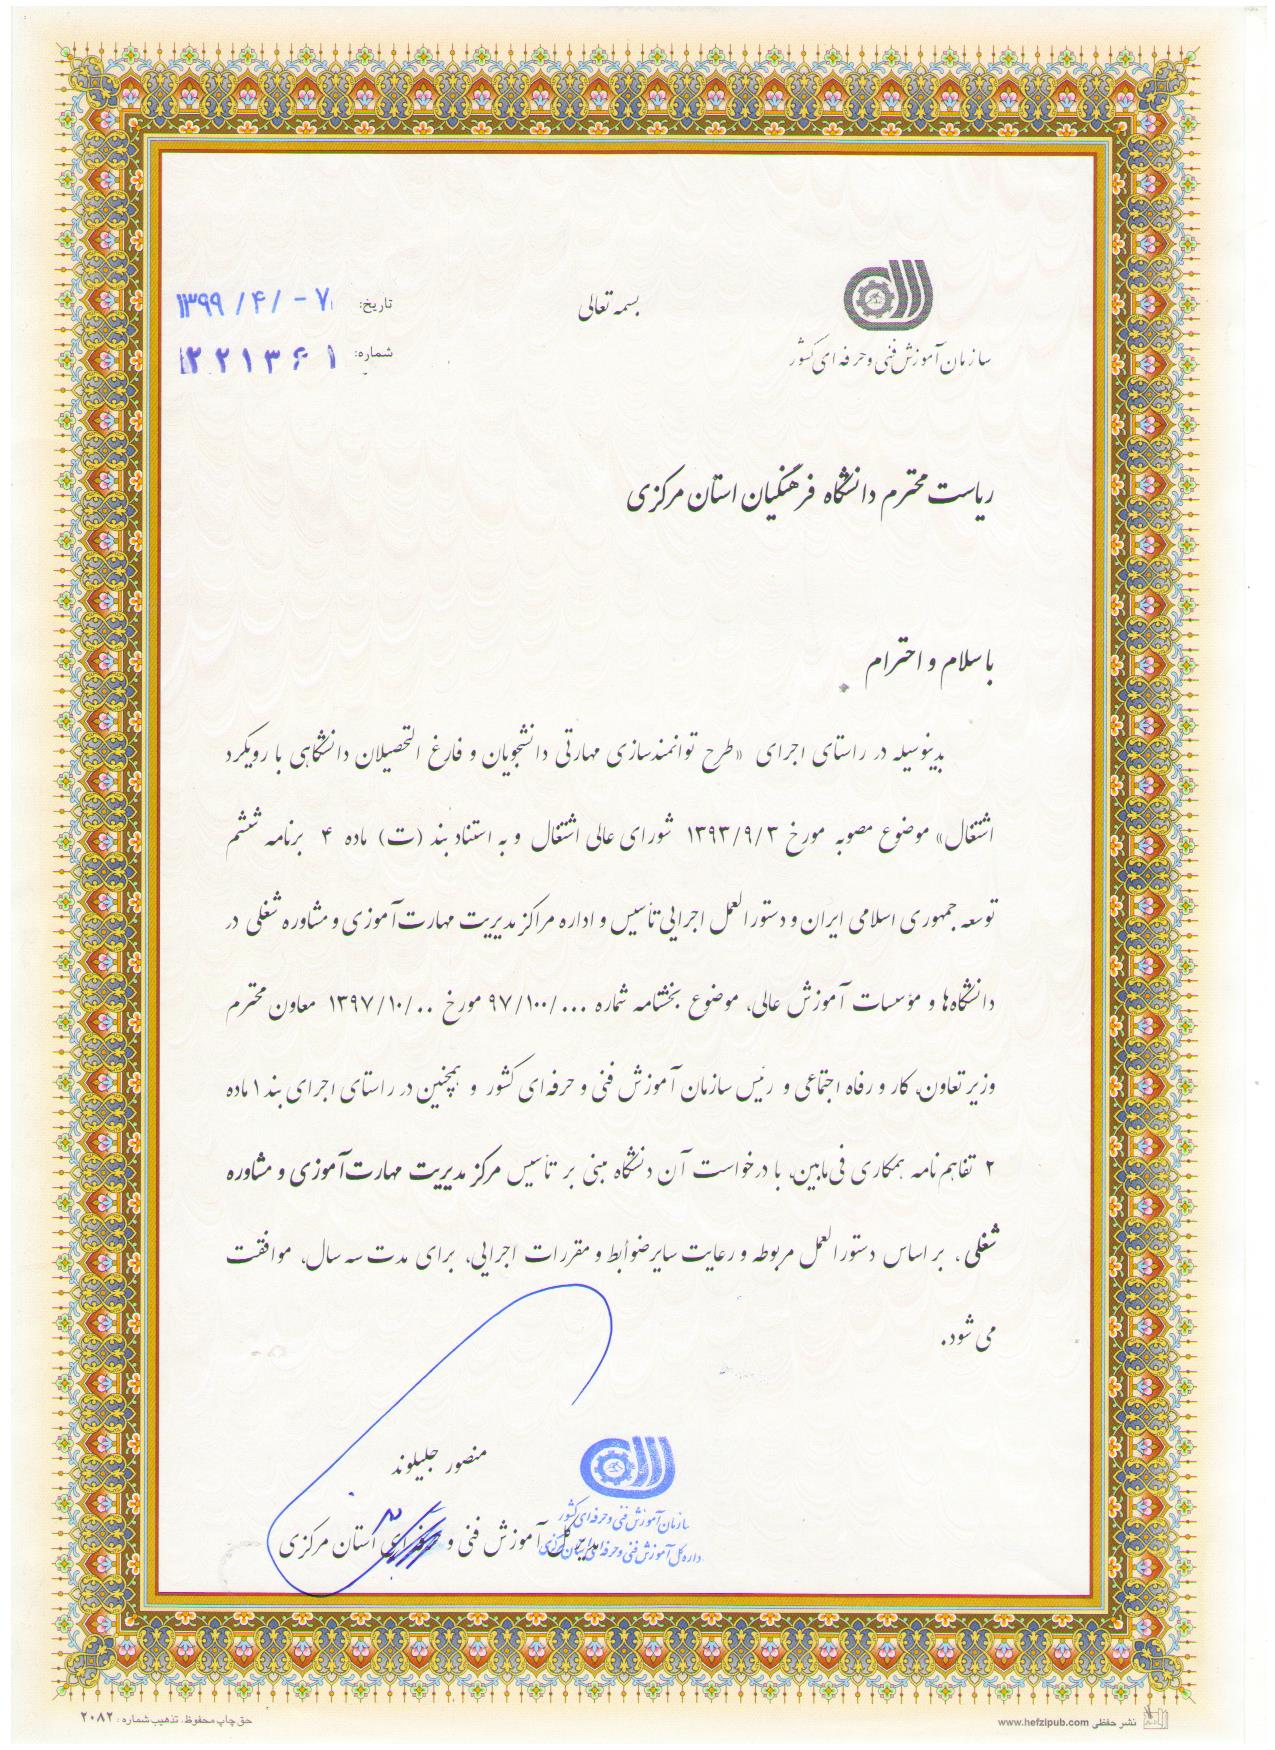 بسمه تعالی
سازمان آموزش فنی و حرفه ای کشور
تاریخ: ۱۳۹۹/۴/-۷
شماره: ۱۲۲۱۳۶۱
ریاست محترم دانشگاه فرهنگیان استان مرکزی
با سلام و احترام
بدینوسیله در راستای اجرای «طرح توانمندسازی مهارتی دانشجویان و فارغ التحصیلان دانشگاهی با رویکرد
اشتغال» موضوع مصوبه مورخ ۱۳۹۳/۹/۳ شورای عالی اشتغال و به استناد بند (ت) ماده ۴ برنامه ششم
توسعه جمهوری اسلامی ایران و دستورالعمل اجرایی تأسیس و اداره مراکز مدیریت مهارت‌آموزی و مشاوره شغلی در
دانشگاه‌ها و مؤسسات آموزش عالی، موضوع بخشنامه شماره ۹۷/۱۰۰/۰۰۰ مورخ ۱۳۹۷/۱۰/۰۰ معاون محترم
وزیر تعاون، کار و رفاه اجتماعی و رئیس سازمان آموزش فنی و حرفه‌ای کشور و همچنین در راستای اجرای بند ۱ ماده
۲ تفاهم‌نامه همکاری فی‌مابین، با درخواست آن دنشگاه مبنی بر تأسیس مرکز مدیریت مهارت‌آموزی و مشاوره
شغلی، بر اساس دستورالعمل مربوطه و رعایت سایر ضوابط و مقررات اجرایی، برای مدت سه سال، موافقت
می شود.
منصور جلیلوند
مدیرکل آموزش فنی و حرفه‌ای استان مرکزی
سازمان آموزش فنی و حرفه ای کشور
اداره کل آموزش فنی و حرفه ای استان مرکزی
نشر حفظی www.hefzipub.com
حق چاپ محفوظ، تذهیب شماره: ۲۰۸۲